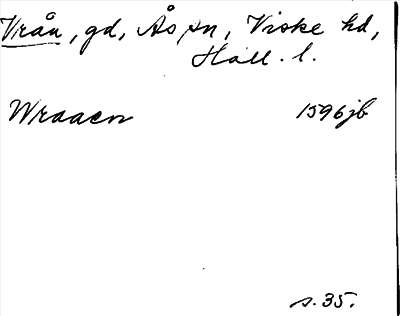 Vrån, gd, Ås sn, Viske hd,
Hall. l.
Wraaen 1596 jb
s. 35.